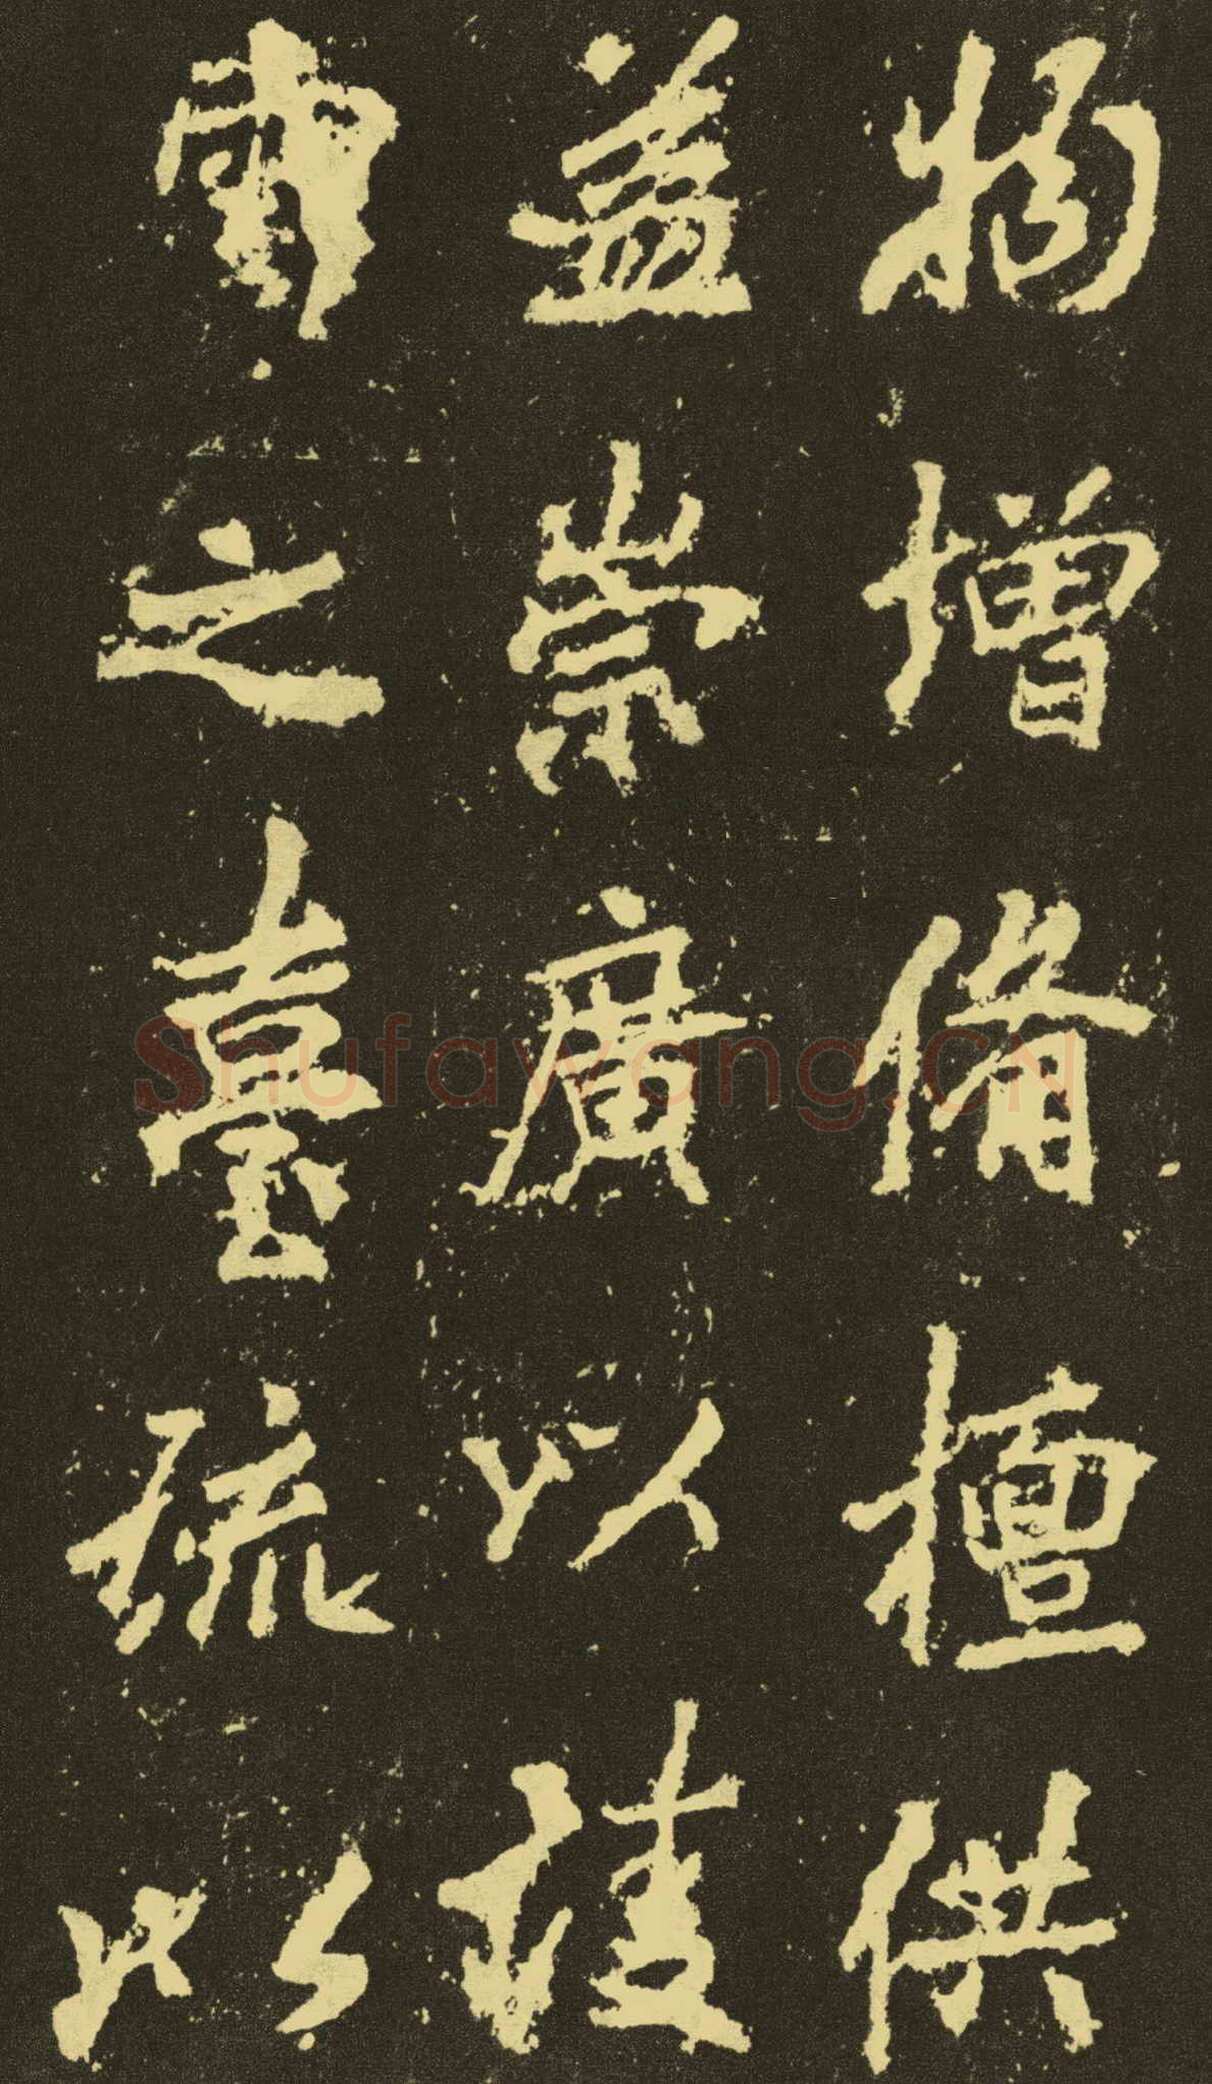 物增備檀供
益崇廣以淩
雲之臺疏以
Shufawang.CN